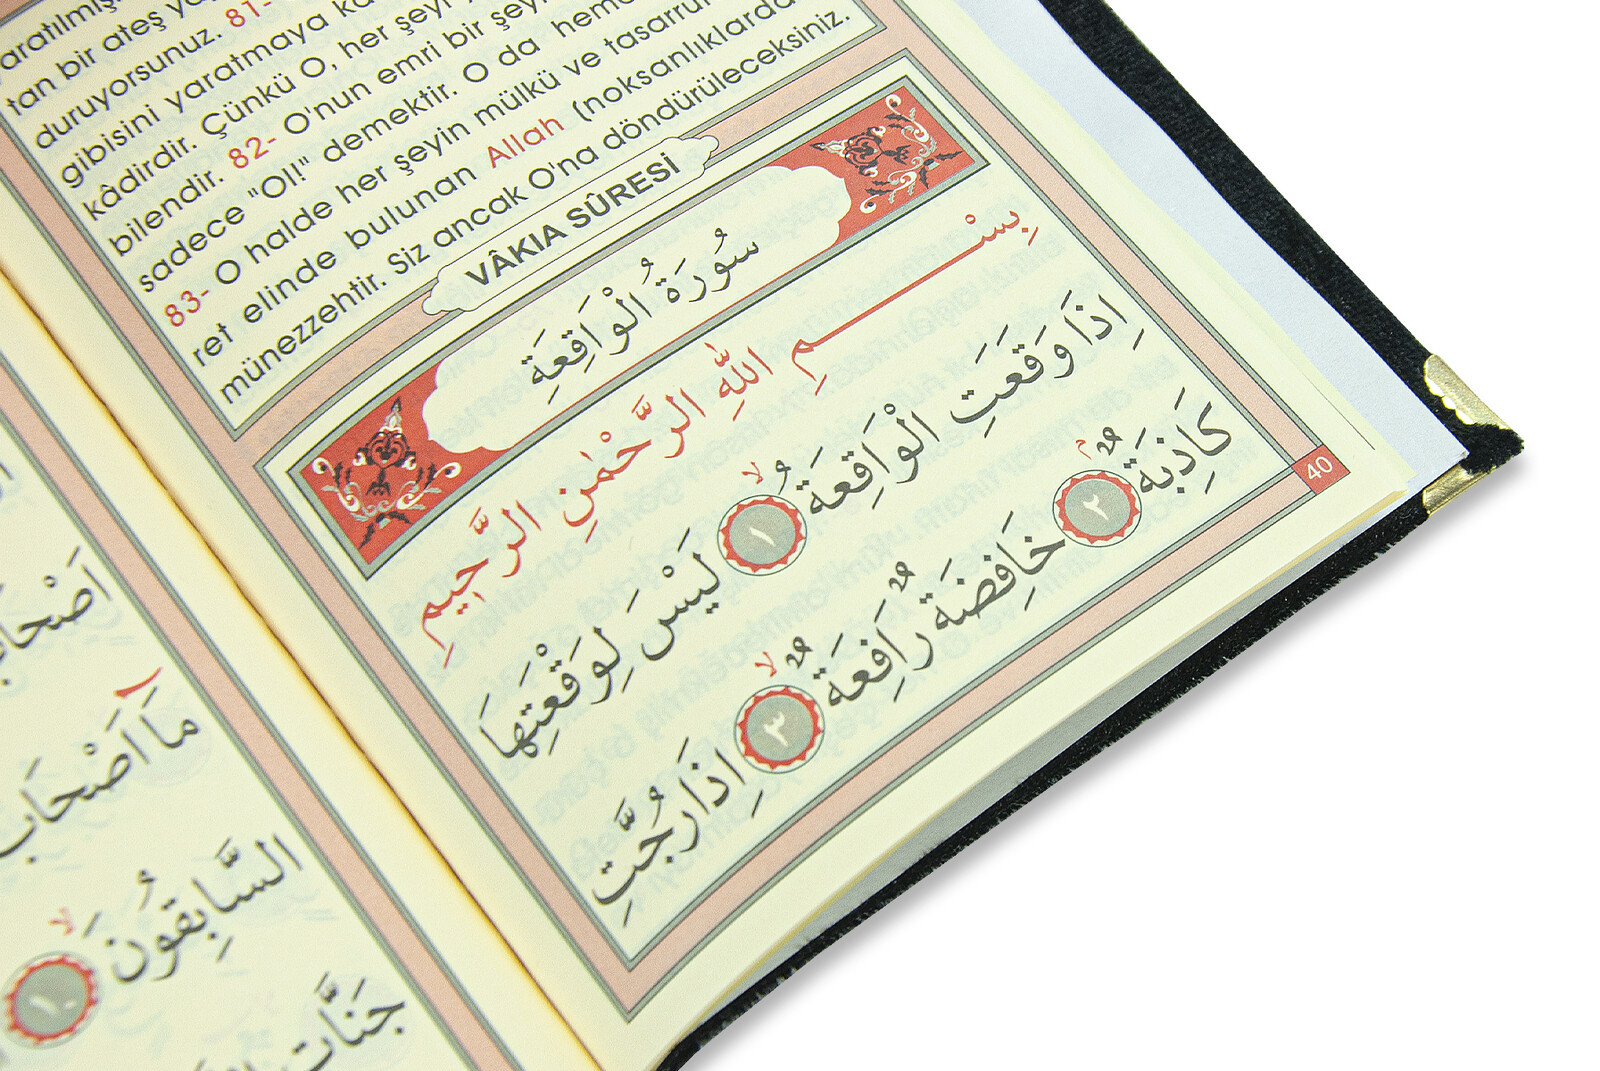 aratılmış
tan bir ateş
duruyorsunuz. 81-
gibisini yaratmaya
kâdirdir. Çünkü O, her şeyi
bilendir. 82- O'nun emri bir şeyi
sadece "Ol!" demektir. O da hemen
83- O halde her şeyin mülkü ve tasarruf
ret elinde bulunan Allah (noksanlıklarda
münezzehtir. Siz ancak O'na döndürüleceksiniz.
VÂKIA SÛRESİ
سُورَةُ الْوَاقِعَةِ
بِسْــــــمِ اللّٰهِ الرَّحْمٰنِ الرَّحِيمِ
اِذَا وَقَعَتِ الْوَاقِعَةُ ۙ ١ لَيْسَ لِوَقْعَتِهَا
كَاذِبَةٌ ۢ ٢ خَافِضَةٌ رَافِعَةٌ ۙ ٣ اِذَا رُجَّتِ
40
مَٓا اَصْحَابُ
السَّابِقُونَ ۙ ١٠
جَنَّاتِ